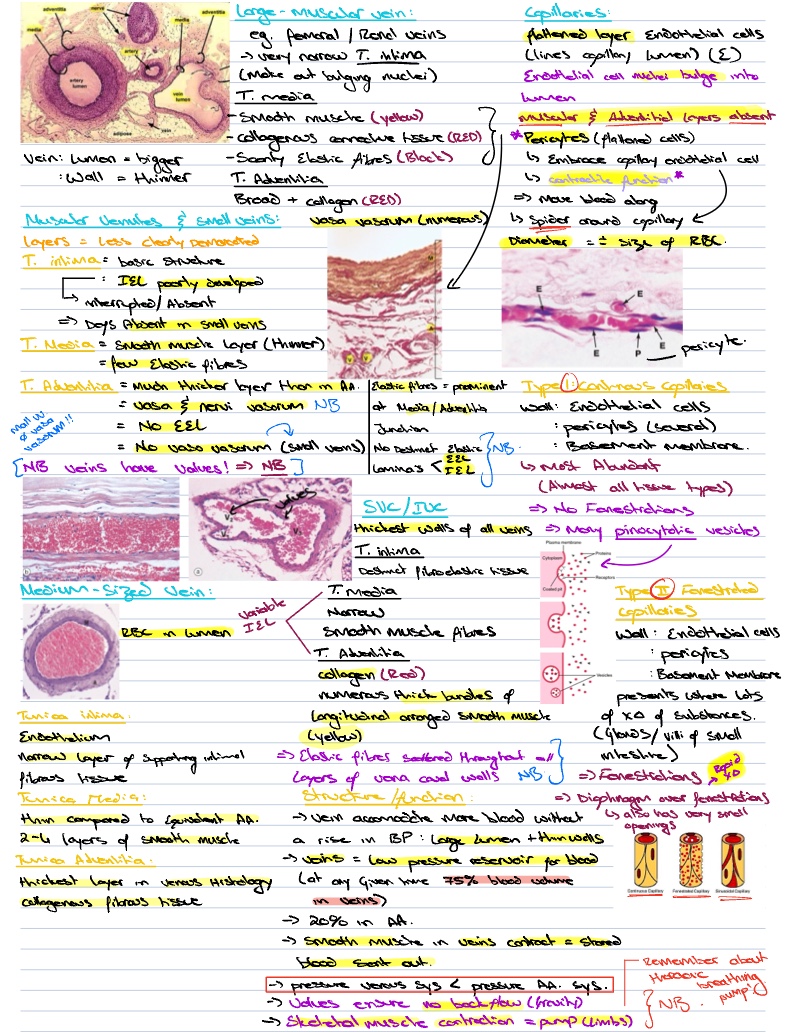 adventitia
nerve
media
adventitia
media
artery
artery lumen
vein lumen
adipose
vein
Vein: Lumen = bigger
: Wall = thinner
Large-muscular vein:
eg. femoral / Renal veins
→ very narrow T. intima
(make out bulging nuclei)
T. media
- Smooth muscle (yellow)
- collagenous connective tissue (RED)
- Scanty Elastic fibres (Black)
T. Adventitia
Broad + collagen (RED)
vasa vasorum (numerous)
Muscular Venules & small veins:
layers = Less clearly Demarcated
T. intima = basic structure
: IEL poorly developed
→ interrupted / Absent
⇒ Deys Absent in small veins
T. Media = Smooth muscle Layer (thinner)
= few Elastic fibres
T. Adventitia = Much thicker layer than in AA.
= vasa & nervi vasorum NB
= No EEL
= No vaso vasorum (small veins)
vasa vasorum!!
[NB veins have valves! ⇒ NB]
Elastic fibres = prominent
at Media/Adventitia
Junction
No Distinct Elastic
lamina's < EEL
IEL
NB.
valves
V
V
Medium-Sized Vein:
RBC in lumen
variable IEL
Tunica intima:
Endothelium
narrow layer of supporting intimal
fibrous tissue
Tunica Media:
thin compared to equivalent AA.
2-4 layers of smooth muscle
Tunica Adventitia:
thickest layer in venous histology
collagenous fibrous tissue
SVC/IVC
thickest walls of all veins
T. intima
Distinct fibroelastic tissue
T. media
Narrow
Smooth Muscle fibres
T. Adventitia
collagen (Red)
numerous thick bundles of
longitudinal arranged smooth muscle
(yellow)
⇒ Elastic fibres scattered throughout all
layers of vena caval walls NB
Structure/function:
→ vein accomodate more blood without
a rise in BP: large lumen + thin walls
→ veins = low pressure reservoir for blood
(at any given time 75% blood volume
in veins)
→ 20% in AA.
→ Smooth muscle in veins contract = stored
blood sent out.
→ pressure venous sys < pressure AA. sys.
→ Valves ensure no backflow (gravity)
→ Skeletal muscle contraction = pump (limbs)
NB.
remember about
thoracic
breathing
pump!
Capillaries:
flattened layer Endothelial cells
(lines capillary lumen) (E)
Endothelial cell nuclei bulge into
lumen
muscular & Adventitial layers absent
* Pericytes (flattened cells)
↳ Embrace capillary endothelial cell
↳ contractile function*
⇒ move blood along
↳ Spider around capillary
Diameter = ± size of RBC.
E
E
E
E
P
pericyte.
Type I: Continous Capillaries
Wall: Endothelial cells
: pericytes (several)
: Basement membrane.
↳ Most Abundant
(Almost all tissue types)
⇒ No Fenestrations
⇒ Many pinocytotic vesicles
Plasma membrane
Cytoplasm
Proteins
Receptors
Coated pit
Vesicles
Type II Fenestrated
capillaries
Wall: Endothelial cells
: pericytes
: Basement Membrane
presents where lots
of x∆ of substances.
(Glands/villi of small
intestine)
⇒ Fenestrations
→ Rapid x∆
⇒ Diaphragm over fenestrations
↳ also has very small
openings
Continuous Capillary
Fenestrated Capillary
Sinusoidal Capillary